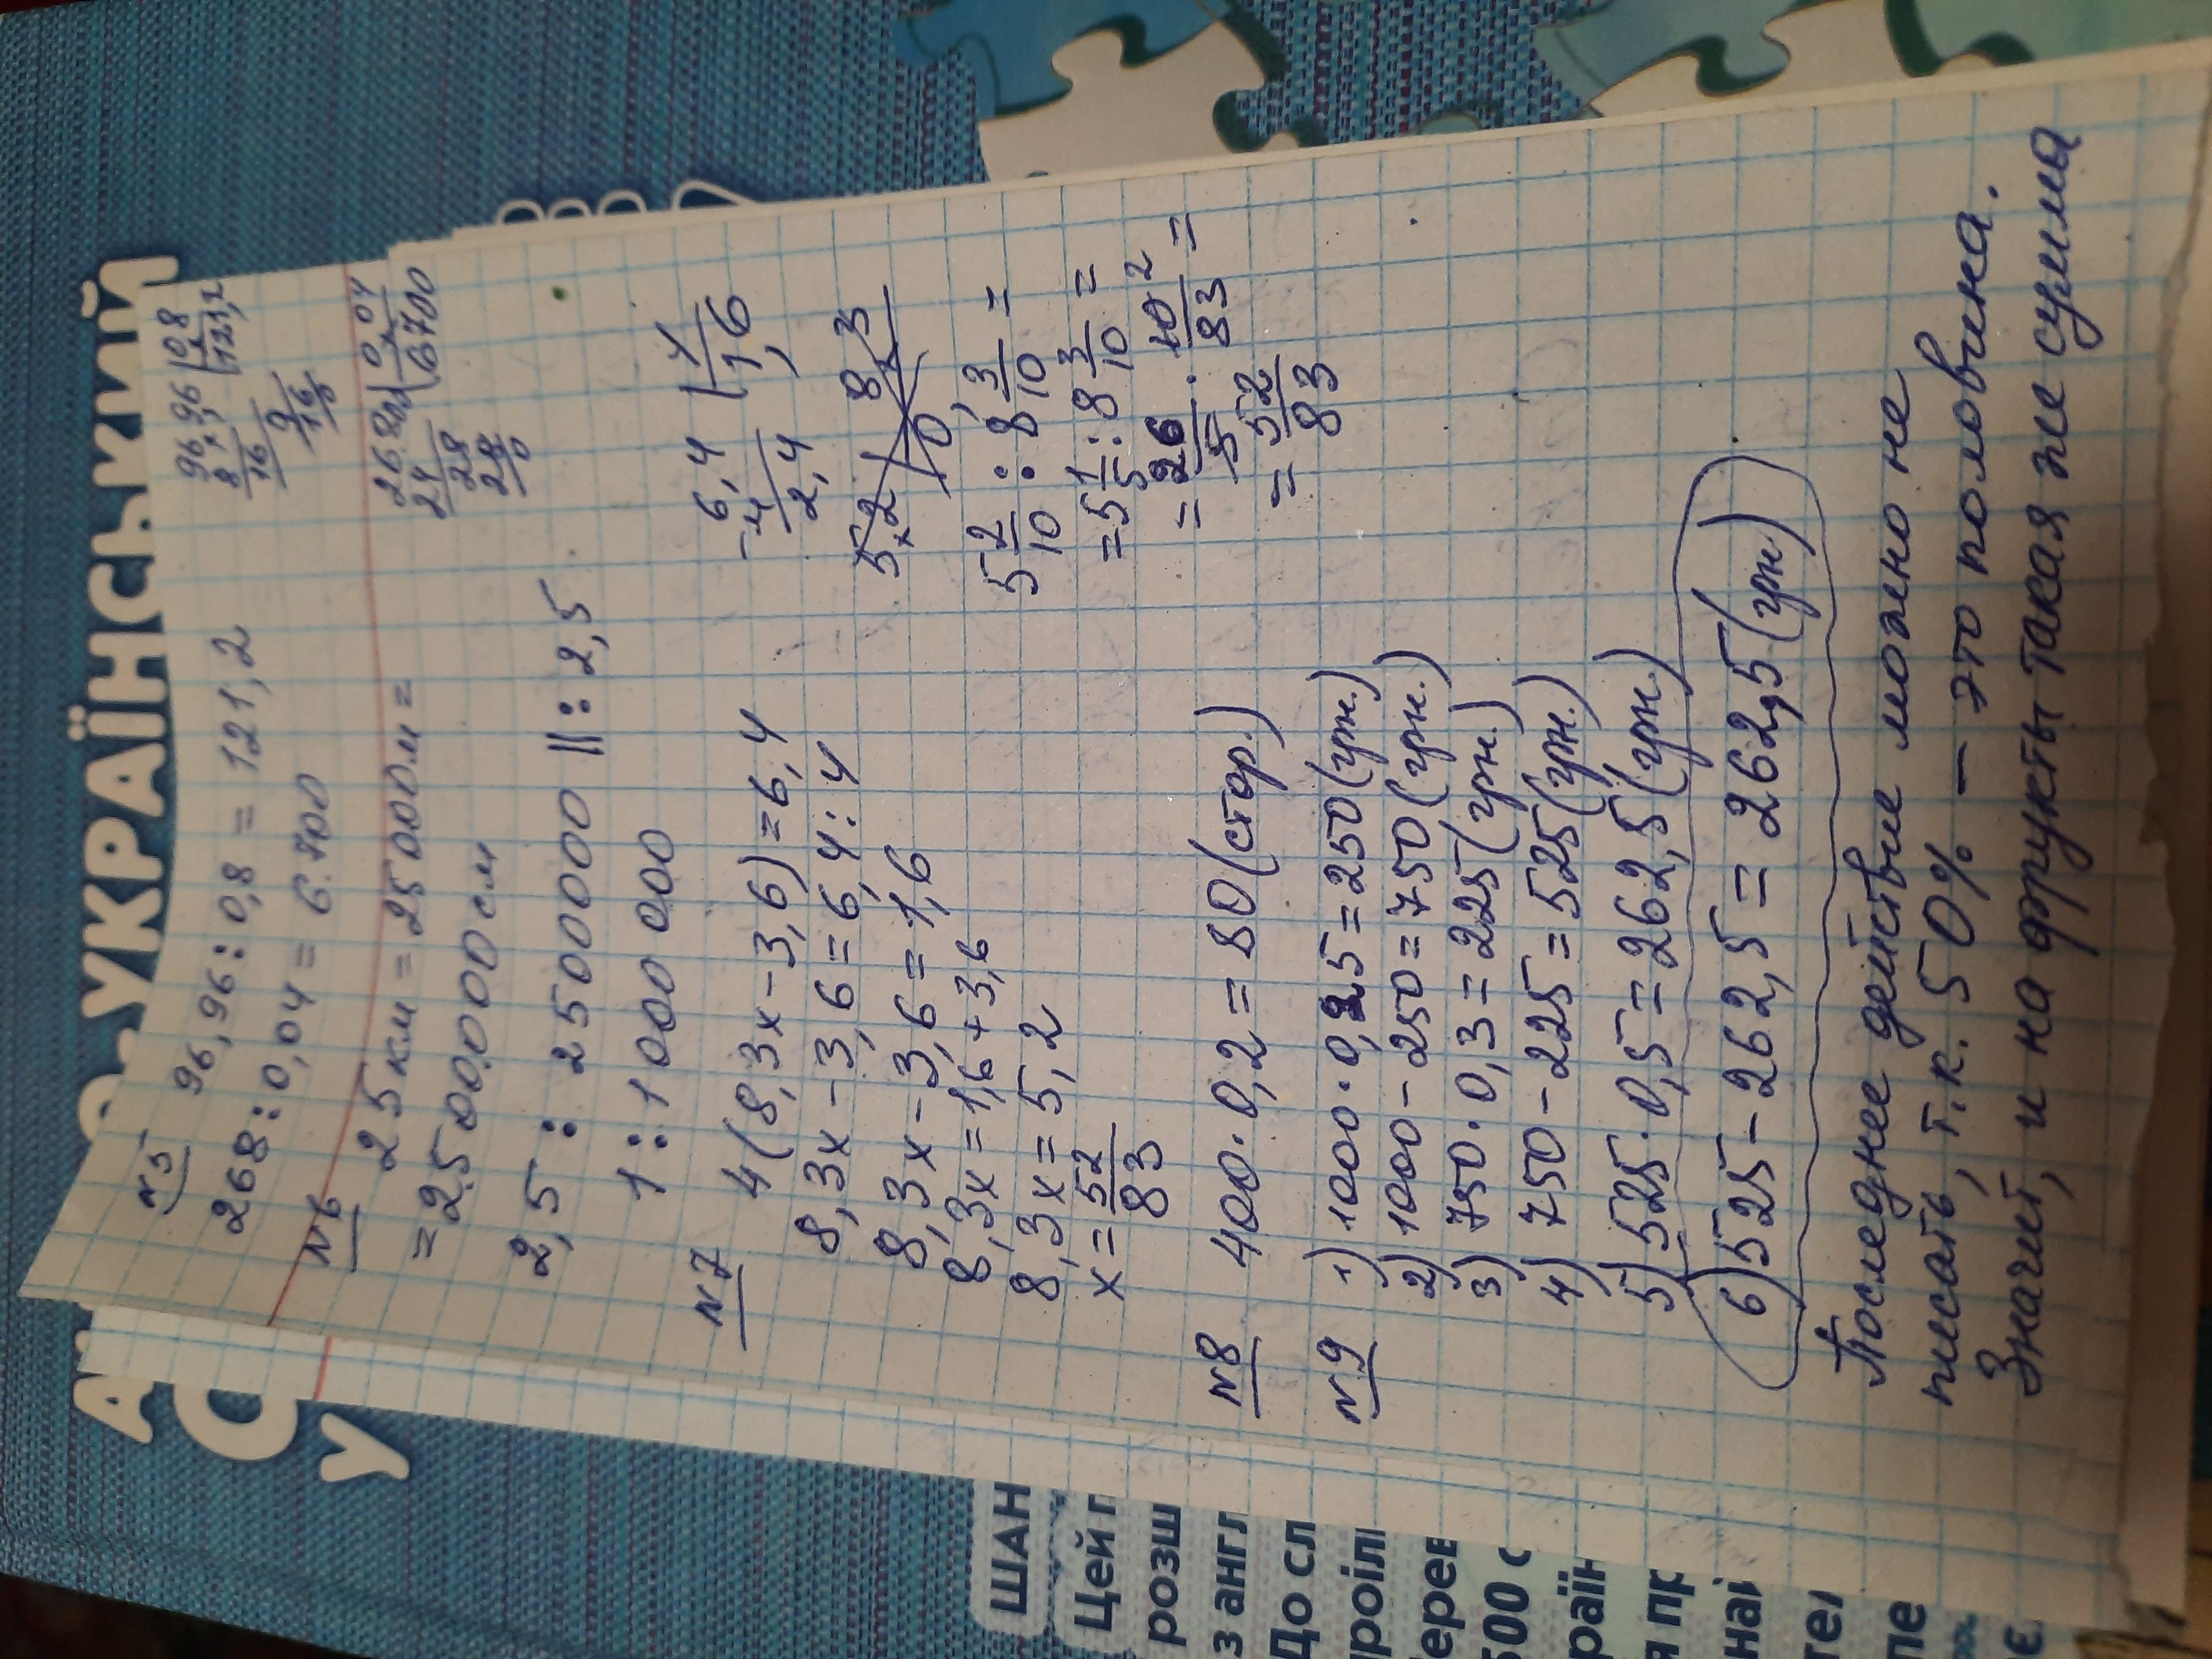 УКРАЇНСЬКИЙ
N5
96,96 : 0,8 = 121,2
268 : 0,04 = 6700
96,96 | 0,8
8 | 121,2
16
16
9
8
16
16
0
268,00 | 0,04
24 | 6700
28
28
0
N6
25 км = 25000 м =
= 2500000 см
2,5 : 2500000 || : 2,5
1 : 1000 000
N7
4(8,3x - 3,6) = 6,4
8,3x - 3,6 = 6,4 : 4
8,3x - 3,6 = 1,6
8,3x = 1,6 + 3,6
8,3x = 5,2
x = 52/83
6,4 | 4
4 | 1,6
2,4
5,2 | 8,3
0,
5 2/10 : 8 3/10 =
= 5 1/5 : 8 3/10 =
= 26/5 · 10 2/83 =
= 52/83
N8 400 · 0,2 = 80 (стор.)
N9 1) 1000 · 0,25 = 250 (грн.)
2) 1000 - 250 = 750 (грн.)
3) 750 · 0,3 = 225 (грн.)
4) 750 - 225 = 525 (грн.)
5) 525 · 0,5 = 262,5 (грн.)
6) 525 - 262,5 = 262,5 (грн.)
Последнее действие можно не
писать, т.к. 50% - это половина.
Значит, и на фрукты такая же сумма
ШАН
Цей п
розш
з англ
До сл